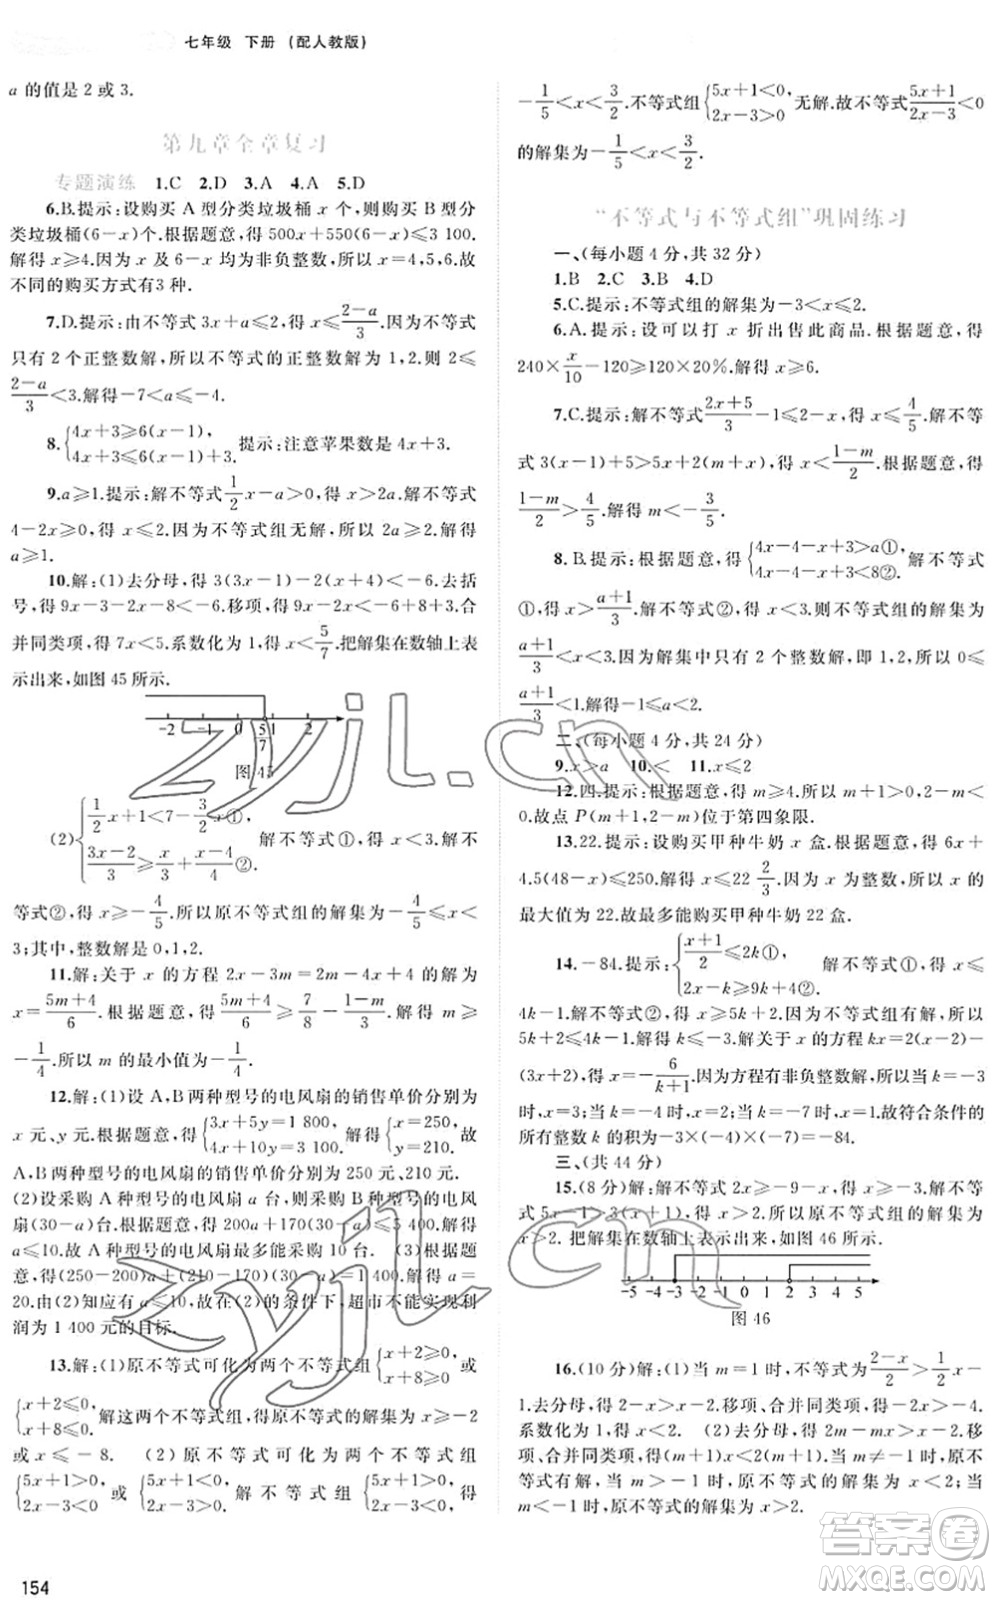 七年级 下册 (配人教版)
a 的值是 2 或 3.
第九章全章复习
专题演练 1.C 2.D 3.A 4.A 5.D
6.B.提示:设购买 A 型分类垃圾桶 x 个,则购买 B 型分
类垃圾桶(6-x)个.根据题意,得 500x+550(6-x)≤3 100.
解得 x≥4.因为 x 及 6-x 均为非负整数,所以 x=4,5,6.故
不同的购买方式有3 种.
7.D.提示:由不等式 3x+a≤2,得 x≤(2-a)/3.因为不等式
只有 2 个正整数解,所以不等式的正整数解为 1,2.则 2≤
(2-a)/3<3.解得-7<a≤-4.
8.{4x+3≥6(x-1), 4x+3≤6(x-1)+3. 提示:注意苹果数是 4x+3.
9.a≥1.提示:解不等式 1/2 x-a>0,得 x>2a.解不等式
4-2x≥0,得 x≤2.因为不等式组无解,所以 2a≥2.解得
a≥1.
10.解:(1)去分母,得 3(3x-1)-2(x+4)<-6.去括
号,得 9x-3-2x-8<-6.移项,得 9x-2x<-6+3+8.合
并同类项,得 7x<5.系数化为 1,得 x<5/7.把解集在数轴上表
示出来,如图 45 所示.
-2 -1 0 5/7 1 2
图 45
(2){1/2 x+1<7-3/2 x①, (3x-2)/3≥x/3+(x-4)/4②. 解不等式①,得 x<3.解不
等式②,得 x≥-4/5.所以原不等式组的解集为-4/5≤x<
3;其中,整数解是 0,1,2.
11.解:关于 x 的方程 2x-3m=2m-4x+4 的解为
x=(5m+4)/6.根据题意,得 (5m+4)/6≥7/8-(1-m)/3.解得 m≥
-1/4.所以 m 的最小值为-1/4.
12.解:(1)设 A,B 两种型号的电风扇的销售单价分别为
x 元、y 元.根据题意,得{3x+5y=1 800, 4x+10y=3 100. 解得{x=250, y=210. 故
A,B 两种型号的电风扇的销售单价分别为 250 元,210 元.
(2)设采购 A 种型号的电风扇 a 台,则采购 B 种型号的电风
扇(30-a)台.根据题意,得 200a+170(30-a)≤5 400.解得
a≤10.故 A 种型号的电风扇最多能采购 10 台. (3)根据题意,
得(250-200)a+(210-170)(30-a)=1 400.解得 a=
20.由(2)知应有 a≤10,故在(2)的条件下,超市不能实现利
润为 1 400 元的目标.
13.解:(1)原不等式可化为两个不等式组{x+2≥0, x+8≥0 或
{x+2≤0, x+8≤0. 解这两个不等式组,得原不等式的解集为 x≥-2
或 x≤-8. (2)原不等式可化为两个不等式组
{5x+1>0, 2x-3<0 或 {5x+1<0, 2x-3>0. 解不等式组 {5x+1>0, 2x-3<0, 得
-1/5<x<3/2.不等式组{5x+1<0, 2x-3>0 无解.故不等式(5x+1)/(2x-3)<0
的解集为-1/5<x<3/2.
“不等式与不等式组”巩固练习
一、(每小题 4 分,共 32 分)
1.B 2.C 3.B 4.D
5.C.提示:不等式组的解集为-3<x≤2.
6.A.提示:设可以打 x 折出售此商品.根据题意,得
240×x/10-120≥120×20%.解得 x≥6.
7.C.提示:解不等式(2x+5)/3-1≤2-x,得 x≤4/5.解不等
式 3(x-1)+5>5x+2(m+x),得 x<(1-m)/2.根据题意,得
(1-m)/2>4/5.解得 m<-3/5.
8.B.提示:根据题意,得{4x-4-x+3>a①, 4x-4-x+3<8②. 解不等式
①,得 x>(a+1)/3.解不等式②,得 x<3.则不等式组的解集为
(a+1)/3<x<3.因为解集中只有 2 个整数解,即 1,2,所以 0≤
(a+1)/3<1.解得-1≤a<2.
二、(每小题 4 分,共 24 分)
9.x>a 10.< 11.x≤2
12.四.提示:根据题意,得 m≥4.所以 m+1>0,2-m<
0.故点 P(m+1,2-m)位于第四象限.
13.22.提示:设购买甲种牛奶 x 盒.根据题意,得 6x+
4.5(48-x)≤250.解得 x≤22 2/3.因为 x 为整数,所以 x 的
最大值为 22.故最多能购买甲种牛奶 22 盒.
14.-84.提示:{(x+1)/2≤2k①, 2x-k≥9k+4②. 解不等式①,得 x≤
4k-1.解不等式②,得 x≥5k+2.因为不等式组有解,所以
5k+2≤4k-1.解得 k≤-3.解关于 x 的方程 kx=2(x-2)-
(3x+2),得 x=-6/(k+1).因为方程有非负整数解,所以当 k=-3
时,x=3;当 k=-4 时,x=2;当 k=-7 时,x=1.故符合条件的
所有整数 k 的积为-3×(-4)×(-7)=-84.
三、(共 44 分)
15.(8 分)解:解不等式 2x≥-9-x,得 x≥-3.解不等式
5x-1>3(x+1),得 x>2.所以原不等式组的解集为
x>2. 把解集在数轴上表示出来,如图 46 所示.
-5 -4 -3 -2 -1 0 1 2 3 4 5
图 46
16.(10 分)解:(1)当 m=1 时,不等式为(2-x)/2>1/2 x-
1.去分母,得 2-x>x-2.移项、合并同类项,得-2x>-4.
系数化为 1,得 x<2. (2)去分母,得 2m-mx>x-2.移
项、合并同类项,得(m+1)x<2(m+1).当 m≠-1 时,原不
等式有解.当 m>-1 时,原不等式的解集为 x<2;当
m<-1 时,原不等式组的解集为 x>2.
154
zyjl.cn
zyjl.cn
答案卷
MXQE.COM